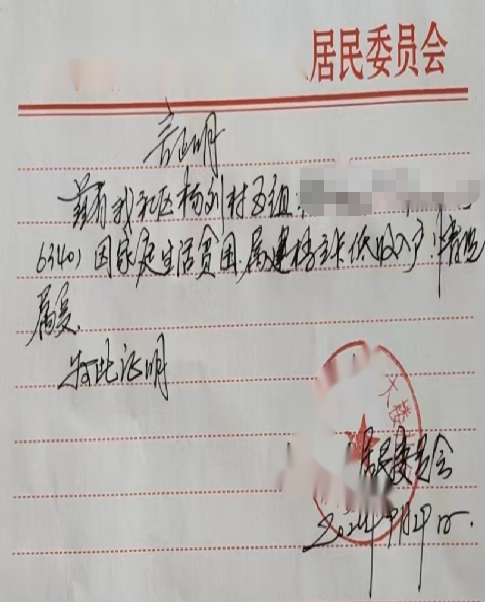 居民委员会
证明
兹有我社区杨刘村五组
6340）因家庭生活贫困，属建档立卡低收入户！情况
属实。
特此证明
居民委员会